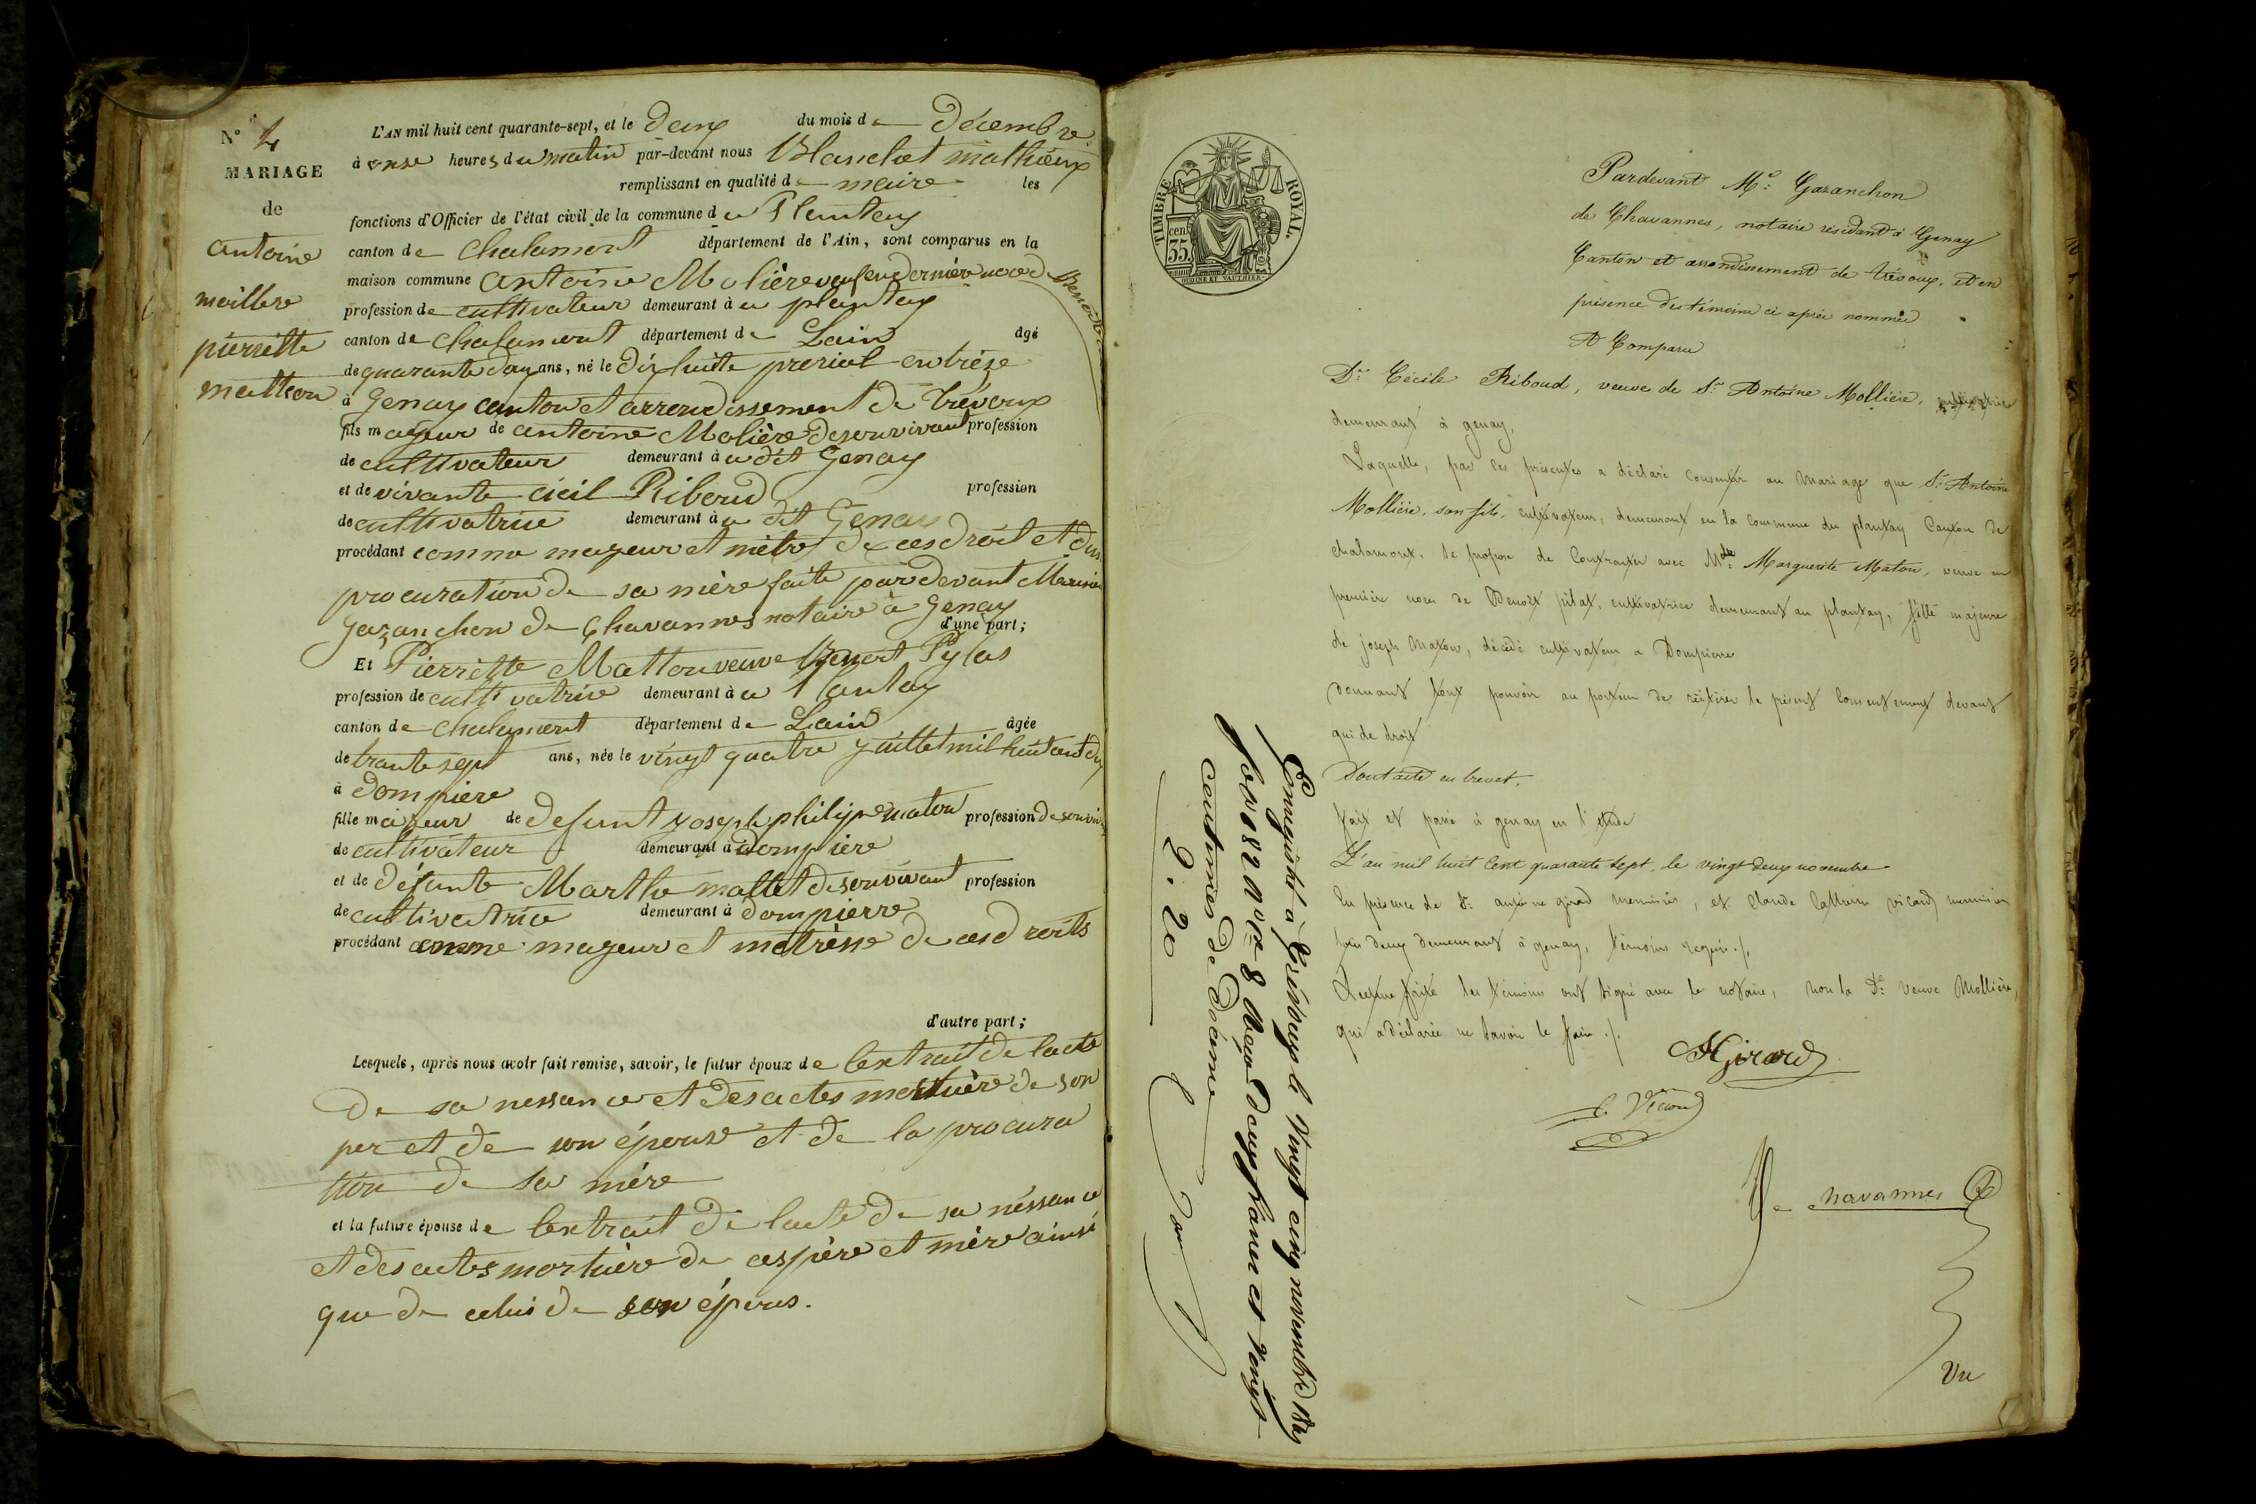 N° 4
MARIAGE
de
antoine
meillere
pierrette
mattion
L'AN mil huit cent quarante-sept, et le deux du mois de décembre
à onse heures du matin par-devant nous Blanchet mathieux
remplissant en qualité de maire les
fonctions d'Officier de l'état civil de la commune du Plantay
canton de Chalamont département de l'Ain, sont comparus en la
maison commune antoine Molière veuf en dernière noce de Benoite
profession de cultivateur demeurant à au plantay
canton de chalamont département de Lain âgé
de quarante deux ans, né le dix huite prerial en trèse
à Genay canton et arrondissement de Trévoux
fils mageur de antoine Molière de sonvivant profession
de cultivateur demeurant à au dit Genay
et de vivante cicil Riboud profession
de cultivatrice demeurant à au dit Genay
procédant comme mageur et mètre de ces droit et dun
procuration de sa mère faite par devant
gazanchon de Chavannes notaire à Genay
d'une part;
Et Pierrette Matton veuve Benoit Pylas
profession de cultivatrice demeurant à au Plantay
canton de chalamont département de Lain âgée
de trante sept ans, née le vingt quatre juillet mil huit cent dix
à dompiere
fille mageur de defunt Joseph philipe maton profession de sonviv
de cultivateur demeurant à dompiere
et de défunte Marthe mallet de sonvivant profession
de cultivatrice demeurant à dompierre
procédant comme mageur et mètrèsse de ces droits
d'autre part;
Lesquels, après nous avoir fait remise, savoir, le futur époux de lextrait de lacte
de sa nessance et des actes mortuère de son
per et de son épouse et de la procura
tion de sa mère
et la future épouse de lextrait de lacte de sa néssance
et des actes mortuère de ces père et mère ainsi
que de celui de son épous.
TIMBRE ROYAL.
35 cen
Pardevant Me. Gazanchon
de Chavannes, notaire résidant à Genay
Canton et arrondissement de Trévoux, et en
présence des témoins ci après nommés
A Comparu
De. Cécile Riboud, veuve de Sr. Antoine Mollière, cultivatrice
demeurant à genay,
Laquelle, par ces présentes a déclaré consentir au mariage que Sr. Antoine
Mollière, son fils, cultivateur, demeurant en la commune du plantay Canton de
chalamont, se propose de Contracter avec Mde. Marguerite Maton, veuve en
première noces de Benoit pilat, cultivatrice demeurant au plantay, fille majeure
de joseph Maton, décédé cultivateur a Dompierre
donnant tout pouvoir au porteur de réitérer le présent consentement devant
qui de droit
Dont acte en brevet.
fait et passé à genay en l'étude
L'an mil huit Cent quarante sept, le vingt deux novembre
En présence de Sr. antoine girard menuisier, et Claude Catherin vicard menuisier
tous deux demeurant à genay, témoins requis ./.
Lecture faite les témoins ont signé avec le notaire, non la De. veuve Mollière,
qui a déclarée ne savoir le faire ./.
Girard
C. Vicard
De Chavannes
Vu
Enregistré à Trévoux le Vingt cinq novembre 1847
fos 182 Ro Ce 8 Reçu deux francs et Vingt
centimes de décime
2.20